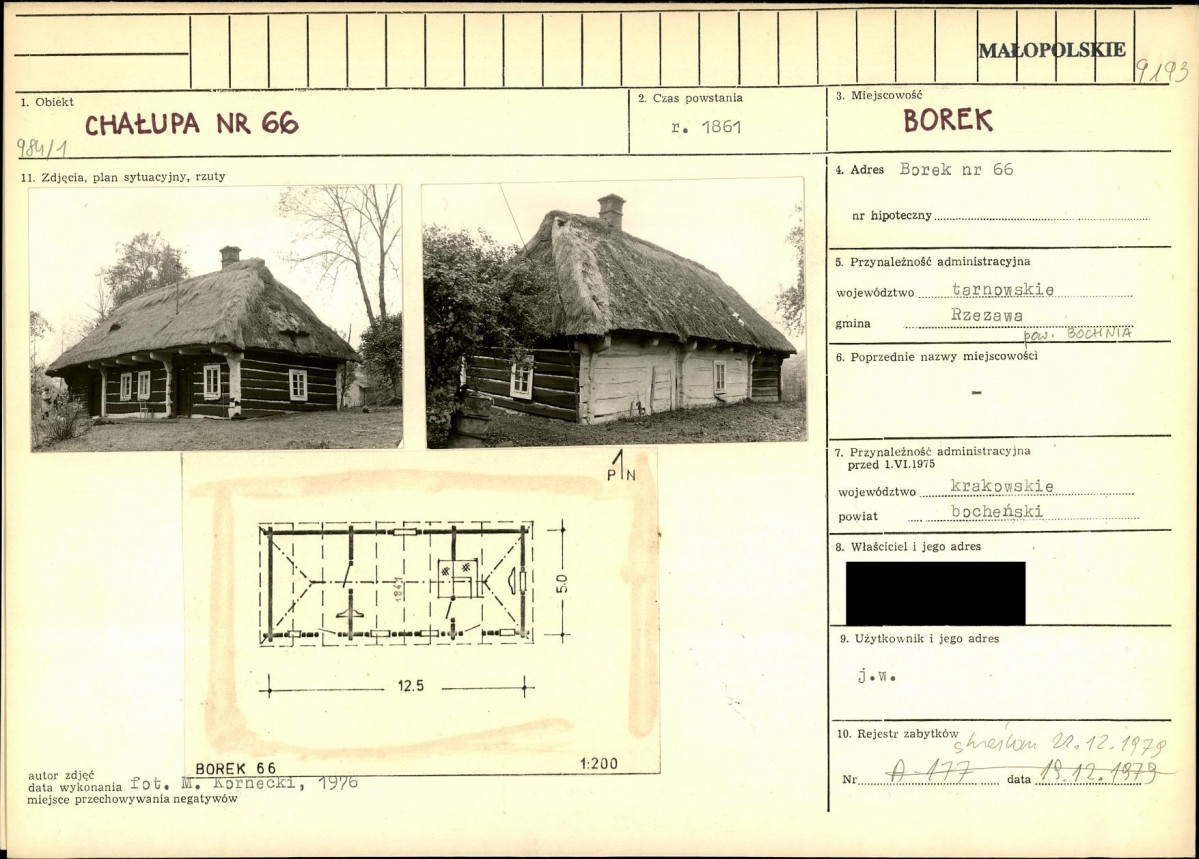 MAŁOPOLSKIE
9193
1. Obiekt
CHAŁUPA NR 66
984/1
2. Czas powstania
r. 1861
3. Miejscowość
BOREK
11. Zdjęcia, plan sytuacyjny, rzuty
4. Adres Borek nr 66
nr hipoteczny
5. Przynależność administracyjna
województwo tarnowskie
gmina Rzezawa
pow. BOCHNIA
6. Poprzednie nazwy miejscowości
-
7. Przynależność administracyjna
przed 1.VI.1975
województwo krakowskie
powiat bocheński
8. Właściciel i jego adres
9. Użytkownik i jego adres
j.w.
10. Rejestr zabytków
22.12.1979
Nr A-177 data 19.12.1979
P N
1861
5.0
12.5
BOREK 66
1:200
autor zdjęć
data wykonania fot. M. Kornecki, 1976
miejsce przechowywania negatywów